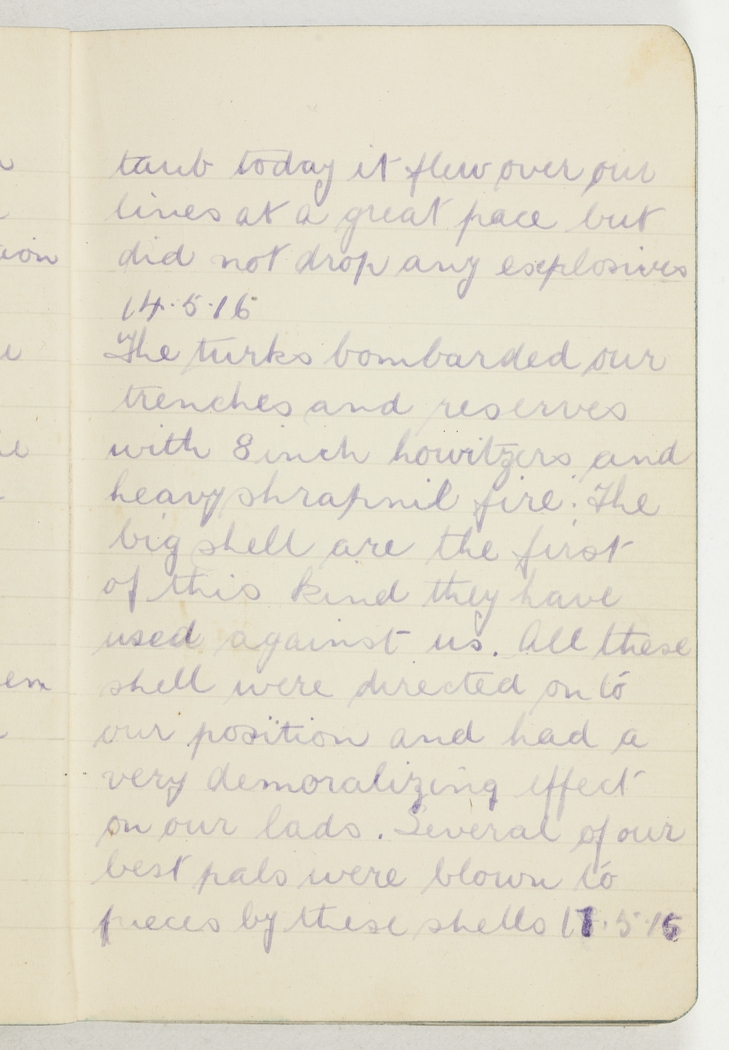 n
aion
e
he
em
taub today it flew over our
lines at a great pace but
did not drop any explosives
14.5.16
The turks bombarded our
trenches and reserves
with 8 inch howitzers and
heavy shrapnil fire. The
big shell are the first
of this kind they have
used against us. All these
shell were directed on to
our position and had a
very demoralizing effect
on our lads. Several of our
best pals were blown to
pieces by these shells